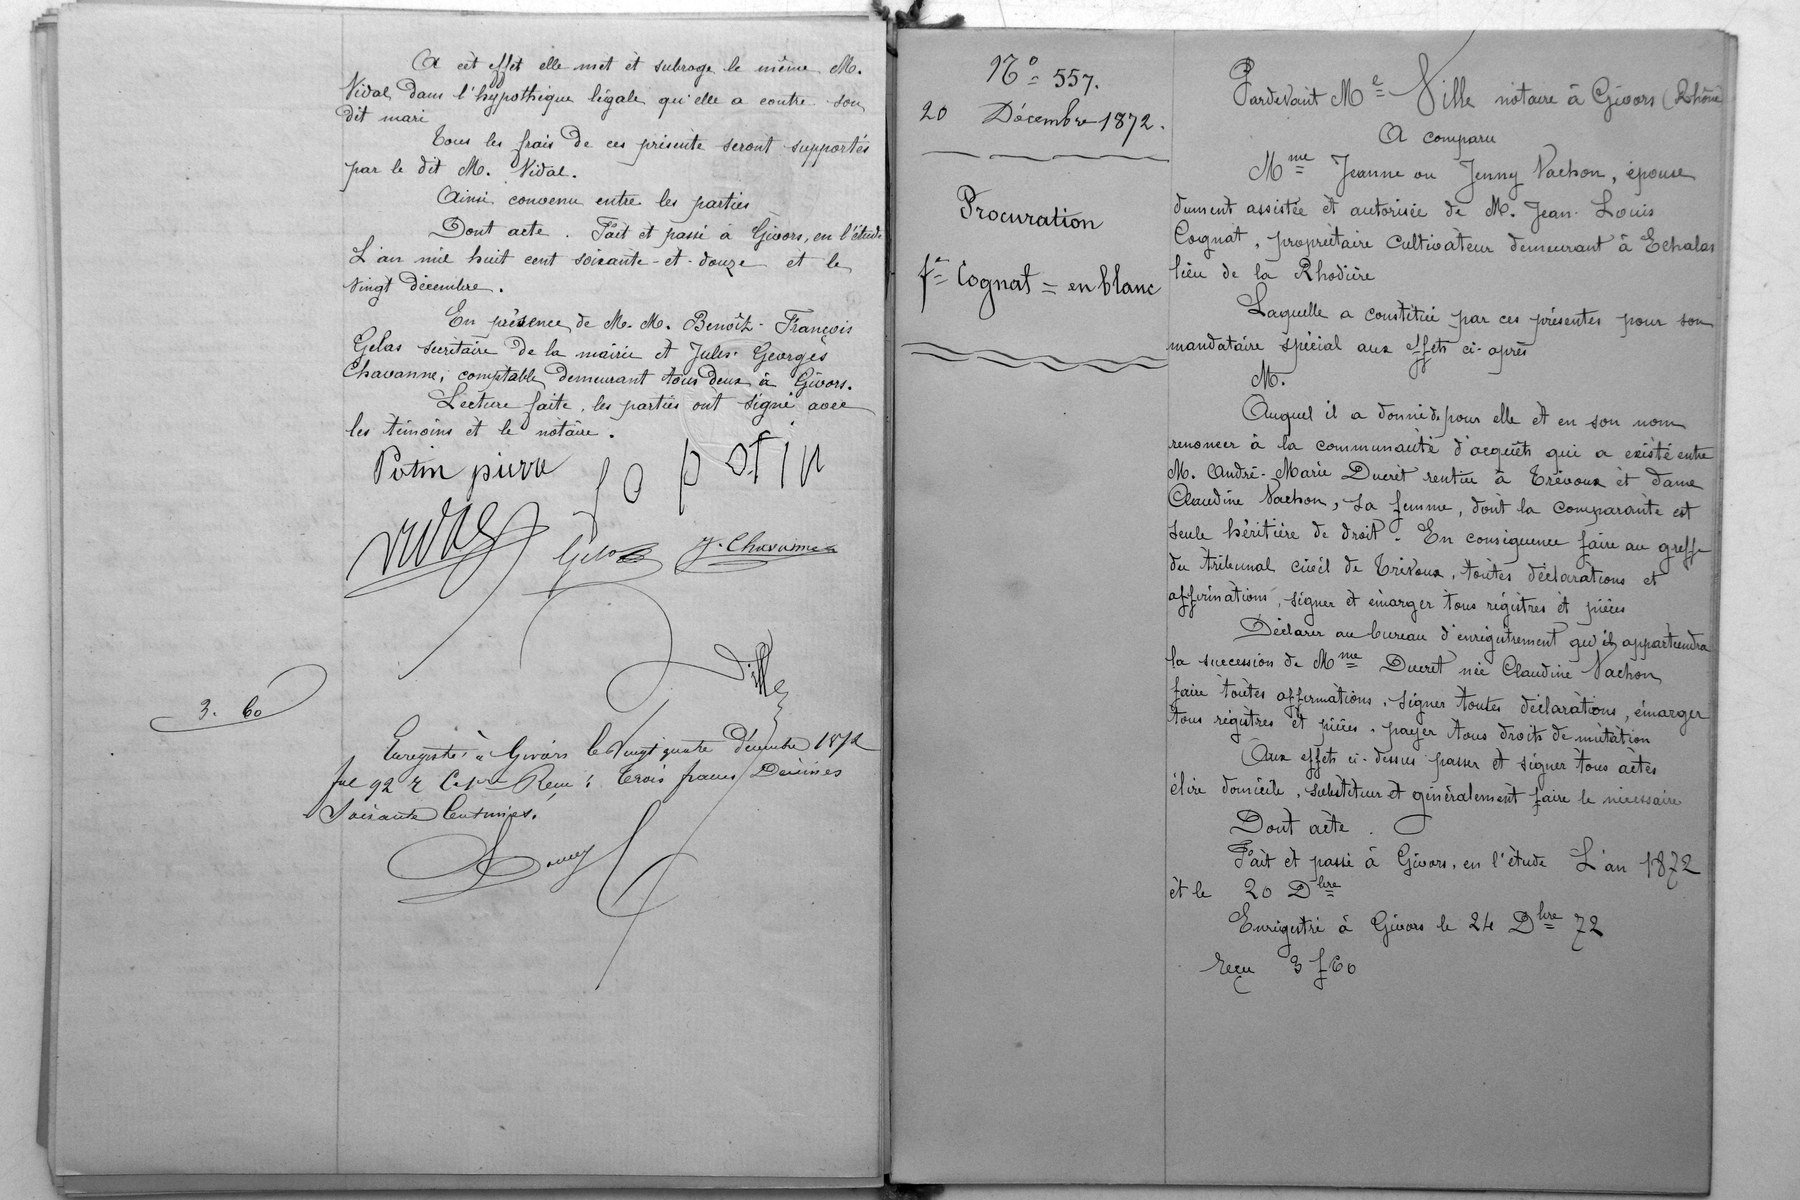 A cèt effèt elle mèt èt subroge le même M.
Vidal dans l'hypothèque légale qu'elle a contre son
dit mari
Tous les frais de ces présente seront supportés
par le dit M. Vidal.
Ainsi convenu entre les parties
Dont acte. Fait et passé à Givors, en l'étude
L'an mil huit cent soixante-et-douze et le
vingt décembre.
En présence de M. M. Benoît-François
Gelas secrétaire de la mairie et Jules-Georges
Chavanne, comptable, demeurant tous deux à Givors.
Lecture faite, les parties ont signé avec
les témoins et le notaire.
Potin pierre
potin
Vidal
Gelas
J. Chavanne
Ville
3. 60
Enregistré à Givors le vingt quatre décembre 1872
fol 92 Reçu : Trois francs Décimes
Soixante Centimes.
N° 557.
20 Décembre 1872.
Procuration
fe Cognat = en blanc
Pardevant Me Ville notaire à Givors (Rhône)
A comparu
Mme Jeanne ou Jenny Vachon, épouse
dument assistée et autorisée de M. Jean-Louis
Cognat, propriétaire cultivateur demeurant à Echalas
lieu de la Rhodière
Laquelle a constitué par ces présentes pour son
mandataire spécial aux effets ci-après
M.
Auquel il a donné de pour elle et en son nom
renoncer à la communauté d'acquêts qui a existé entre
M. André-Marie Ducret rentier à Trévoux et dame
Claudine Vachon, sa femme, dont la comparante est
seule héritière de droit. En conséquence faire au greffe
du tribunal civil de Trévoux, toutes déclarations et
affirmations, signer et émarger tous régistres et pièces
Déclarer au bureau d'enregistrement qu'il appartiendra
la succession de Mme Ducret née Claudine Vachon
faire toutes affirmations, signer toutes déclarations, émarger
tous régistres et pièces, payer tous droits de mutation
Aux effets ci-dessus passer et signer tous actes
élire domicile, substituer et généralement faire le nécessaire
Dont acte.
Fait et passé à Givors, en l'étude L'an 1872
et le 20 Dbre
Enregistré à Givors le 24 Dbre 72
reçu 3 f 60